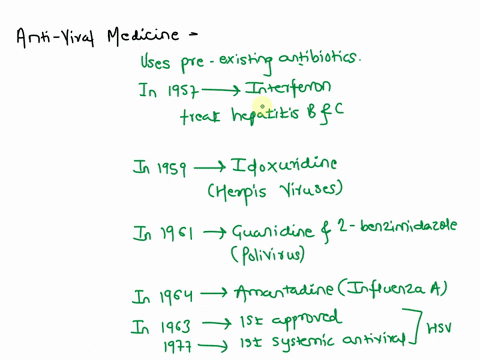 Anti-Viral Medicine -
Uses pre-existing antibiotics.
In 1957 → Interferon
treat hepatitis B & C
In 1959 → Idoxuridine
(Herpis Viruses)
In 1961 → Guanidine & 2-benzimidazole
(Polivirus)
In 1964 → Amantadine (Influenza A)
In 1963 → 1st approved
1977 → 1st systemic antiviral ] HSV